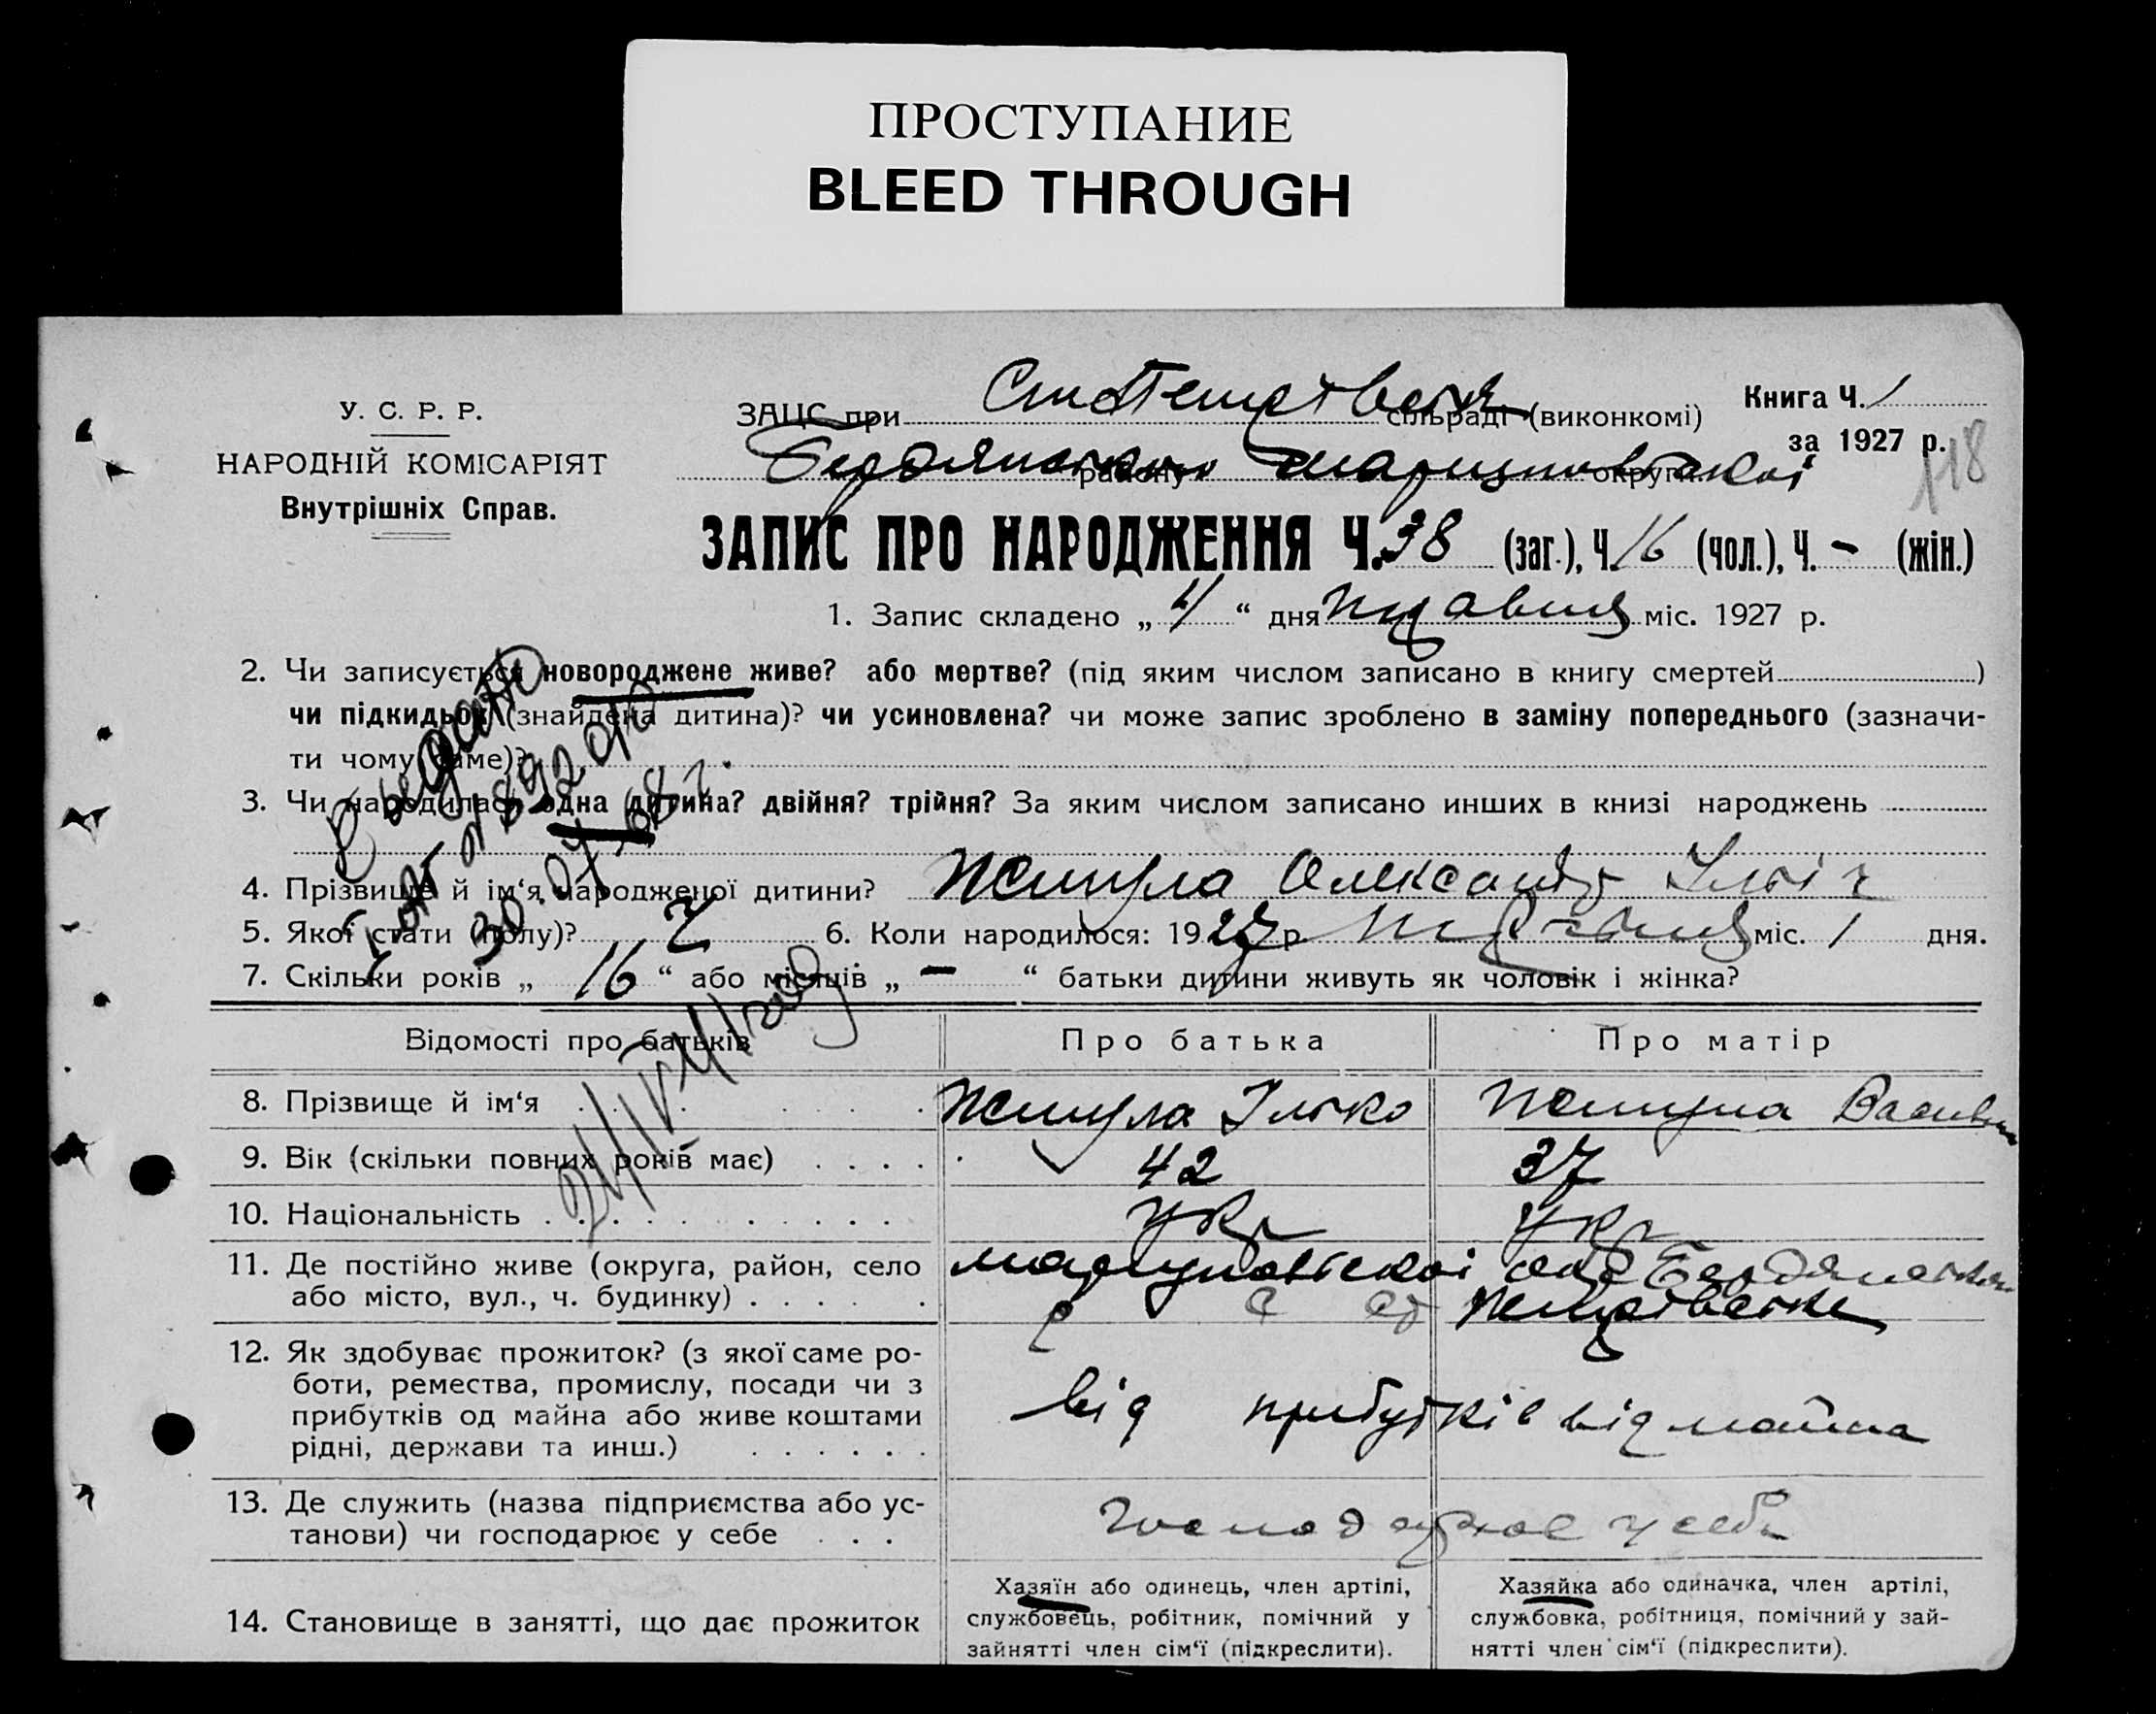 ПРОСТУПАНИЕ
BLEED THROUGH
У. С. Р. Р.
НАРОДНІЙ КОМІСАРІЯТ
Внутрішніх Справ.
ЗАЦС при сільраді (виконкомі)
району округи
Книга Ч. 1
за 1927 р.
118
ЗАПИС ПРО НАРОДЖЕННЯ Ч. 38 (заг.), Ч. 16 (чол.), Ч. - (жін.)
1. Запис складено „ 4 “ дня міс. 1927 р.
2. Чи записується новороджене живе? або мертве? (під яким числом записано в книгу смертей )
чи підкидьок (знайдена дитина)? чи усиновлена? чи може запис зроблено в заміну попереднього (зазначи-
ти чому саме)?
3. Чи народилась одна дитина? двійня? трійня? За яким числом записано инших в книзі народжень
4. Прізвище й ім'я народженої дитини? Жмула Олександр Ілліч
5. Якої стати (полу)? Ч 6. Коли народилося: 1927 р. міс. 1 дня.
7. Скільки років „ 16 “ або місяців „ - “ батьки дитини живуть як чоловік і жінка?
Відомості про батьків Про батька Про матір
8. Прізвище й ім'я Жмула Ілько Жмула
9. Вік (скільки повних років має) 42 37
10. Національність укр укр
11. Де постійно живе (округа, район, село
або місто, вул., ч. будинку)
12. Як здобуває прожиток? (з якої саме ро-
боти, ремества, промислу, посади чи з
прибутків од майна або живе коштами
рідні, держави та инш.)
від прибутків від майна
13. Де служить (назва підприємства або ус-
танови) чи господарює у себе
господарює у себе
14. Становище в занятті, що дає прожиток
Хазяїн або одинець, член артілі,
службовець, робітник, помічний у
зайнятті член сім'ї (підкреслити).
Хазяйка або одиначка, член артілі,
службовка, робітниця, помічний у зай-
нятті член сім'ї (підкреслити).